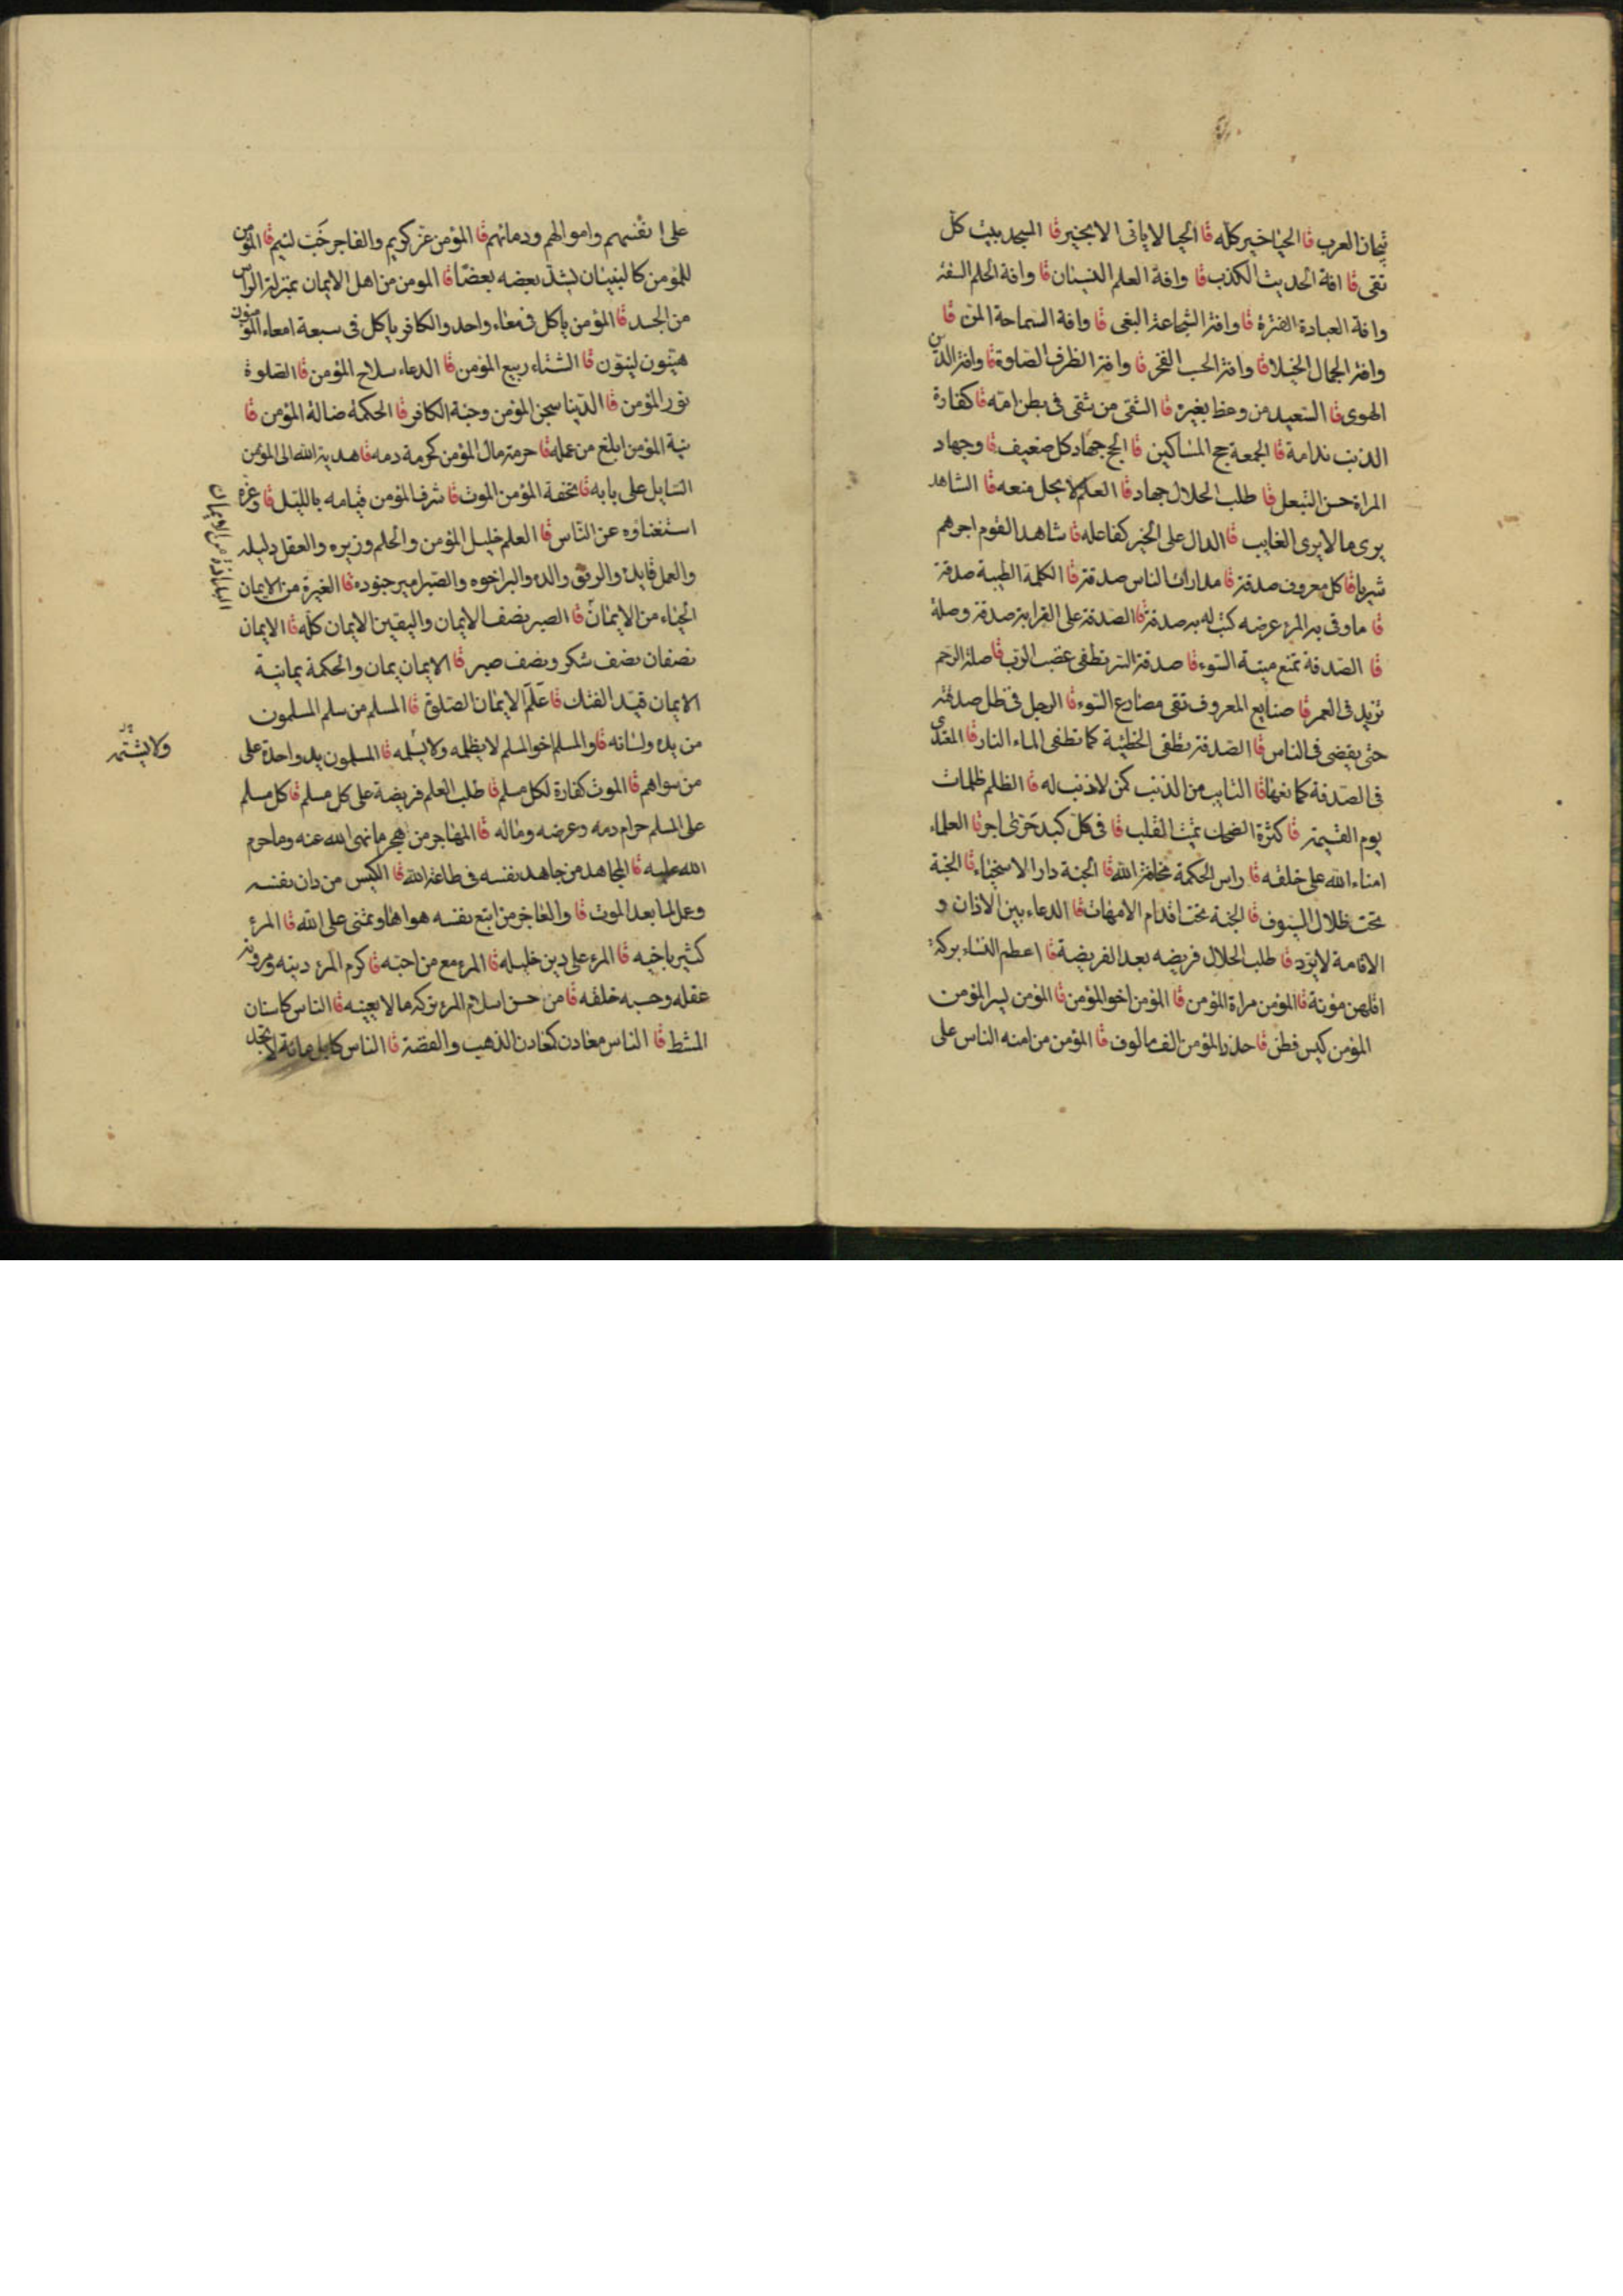 تيجان العرب قا الحيا خير كله قا الحيا لا ياتى الا بخير قا المسجد بيت كل
تقى قا افة الحديث الكذب قا وافة العلم النسيان قا وافة الحلم السفه
وافة العبادة الفترة قا وافة الشجاعة البغى قا وافة السماحة المن قا
وافة الجمال الخيلا قا وافة الحسب الفخر قا وافة الظرف الصلف قا وافة الدين
الهوى قا السعيد من وعظ بغيره قا الشقى من شقى فى بطن امه قا كفارة
الذنب ندامة قا الجمعة حج المساكين قا الحج جهاد كل ضعيف قا وجهاد
المراة حسن التبعل قا طلب الحلال جهاد قا العلم لا يحل منعه قا الشاهد
يرى ما لا يرى الغايب قا الدال على الخير كفاعله قا شاهد القوم اجرهم
شربا قا كل معروف صدقة قا مدارات الناس صدقة قا الكلمة الطيبة صدقة
قا ما وقى به المرء عرضه كتب له به صدقة قا الصدقة على القرابة صدقة وصلة
قا الصدقة تمنع ميتة السوء قا صدقة السر تطفى غضب الرب قا صلة الرحم
تزيد فى العمر قا صنايع المعروف تقى مصارع السوء قا الرجل فى ظل صدقته
حتى يقضى فى الناس قا الصدقة تطفى الخطيئة كما تطفى الماء النار قا المعتدى
فى الصدقة كمانعها قا التايب من الذنب كمن لا ذنب له قا الظلم ظلمات
يوم القيمة قا كثرة الضحك تميت القلب قا فى كل كبد حرى اجر قا العلماء
امناء الله على خلقه قا راس الحكمة مخافة الله قا الجنة دار الاسخياء قا الجنة
تحت ظلال السيوف قا الجنة تحت اقدام الامهات قا الدعاء بين الاذان و
الاقامة لا يرد قا طلب الحلال فريضه بعد الفريضة قا اعظم النساء بركة
اقلهن مؤنة قا المؤمن مراة المؤمن قا المؤمن اخو المؤمن قا المؤمن يسر المؤمن
المؤمن كيس فطن قا حذر المؤمن الف مالوف قا المؤمن من امنه الناس على
على انفسهم واموالهم ودمائهم قا المؤمن غر كريم والفاجر خب لئيم قا المؤمن
للمؤمن كالبنيان يشد بعضه بعضا قا المومن من اهل الايمان بمنزلة الراس
من الجسد قا المؤمن ياكل فى معاء واحد والكافر ياكل فى سبعة امعاء المؤمنون
هينون لينون قا الشتاء ربيع المؤمن قا الدعاء سلاح المؤمن قا الصلوة
نور المؤمن قا الدنيا سجن المؤمن وجنة الكافر قا الحكمة ضالة المؤمن قا
نية المؤمن ابلغ من عمله قا حرمة مال المؤمن كحرمة دمه قا هدية الله الى المؤمن
السايل على بابه قا تحفة المؤمن الموت قا شرف المؤمن قيامه بالليل قا وعزه
استغناؤه عن الناس قا العلم خليل المؤمن والحلم وزيره والعقل دليله
والعمل قايده والرفق والده والبر اخوه والصبر امير جنوده قا الغيرة من الايمان
البذاذة من الايمان
الحياء من الايمان قا الصبر نصف الايمان واليقين الايمان كله قا الايمان
نصفان نصف شكر ونصف صبر قا الايمان يمان والحكمة يمانية
الايمان قيد الفتك قا علم الايمان الصلوة قا المسلم من سلم المسلمون
من يده ولسانه قا والمسلم اخو المسلم لا يظلمه ولا يسلمه قا المسلمون يد واحدة على
ولا يشتمه
من سواهم قا الموت كفارة لكل مسلم قا طلب العلم فريضة على كل مسلم قا كل مسلم
على المسلم حرام دمه وعرضه وماله قا المهاجر من هجر ما نهى الله عنه وما حرم
الله عليه قا المجاهد من جاهد نفسه فى طاعة الله قا الكيس من دان نفسه
وعمل لما بعد الموت قا والعاجز من اتبع نفسه هواها وتمنى على الله قا المرء
كثير باخيه قا المرء على دين خليله قا المرء مع من احبه قا كرم المرء دينه ومروته
عقله وحسبه خلقه قا من حسن اسلام المرء تركه ما لا يعنيه قا الناس كاسنان
المشط قا الناس معادن كمعادن الذهب والفضة قا الناس كابل مائة لا تجد